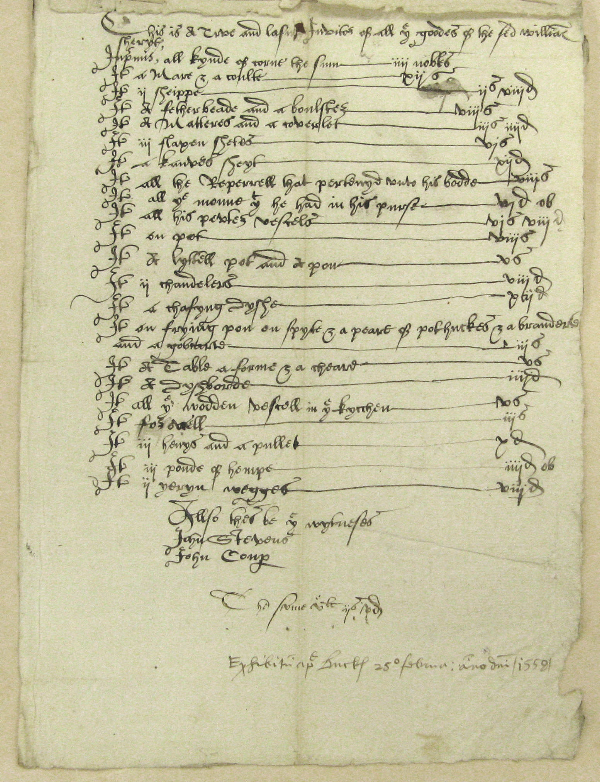 This is A Trve and last Invitẽ of all yͤ goodes of the sed william
sheryt
Inprimis all kynde of corne the sum iiii nobles
It a Mare & a coulte xii s
It ii sheippe iis viiid
It A fetherbeade and a boulster viiis
It A Matteres and a coverlet iiis iiiid
It iii flaxen shetes vis
It a kanves sheyt xiid
It all the Reperrell that pertenyd unto his bodde viiis
It all yͤ monne yͭ he had in his purse vid ob
It all his pewter vescels vis viiid
It on pot viiis
It A lyttell pot and A pon vs
It ii chandelers viiid
It a chafyng dyshe
It on fryinng pon on spyte & a peare of pothuckes & a branderte
and a iiis
It A Table a forme & a cheard vs
It A Dyshborde iiiid
It all yͤ wodden vescell in yͤ kytchen vs
It iiis
It iii henys and a pullet xd
It iii ponde of hempe iiiid ob
It ii yeryn wegges viiid
Allso thes be yͤ wytneses
Jhn Stevens
John Coup
The some
Exhibitũ apͩ 25º februa: Ano dnĩ 1558